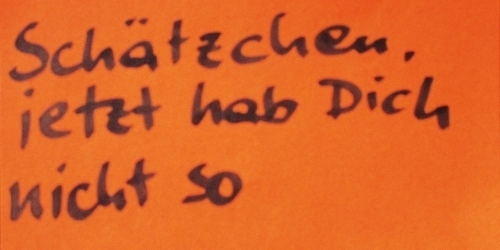 Schätzchen,
jetzt hab Dich
nicht so